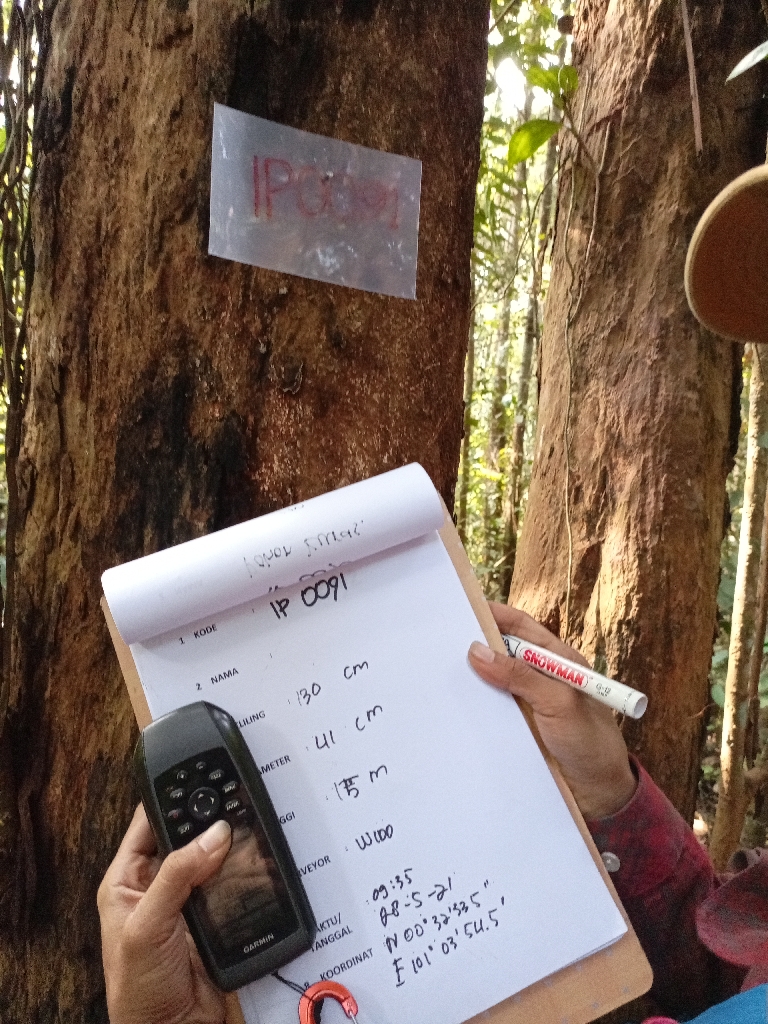 IP0091
IP 0091
1 KODE :
2 NAMA :
LILING : 130 cm
AMETER : 41 cm
GGI : 15 m
VEYOR : W100
AKTU/ : 09:35
TANGGAL 28-5-21
8 KOORDINAT N 00° 32' 33.5"
E 101° 03' 54.5"
SNOWMAN
GARMIN